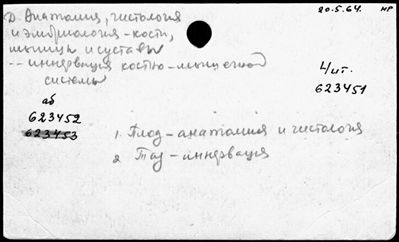 20.5.64. нр
Д. Анатомия, гистология
и эмбриология - кости,
мышцы и суставы
-- иннервация костно-мышечной
системы
4 ит.
623451
аб
623452
623453
1. Плод - анатомия и гистология
2. Таз - иннервация